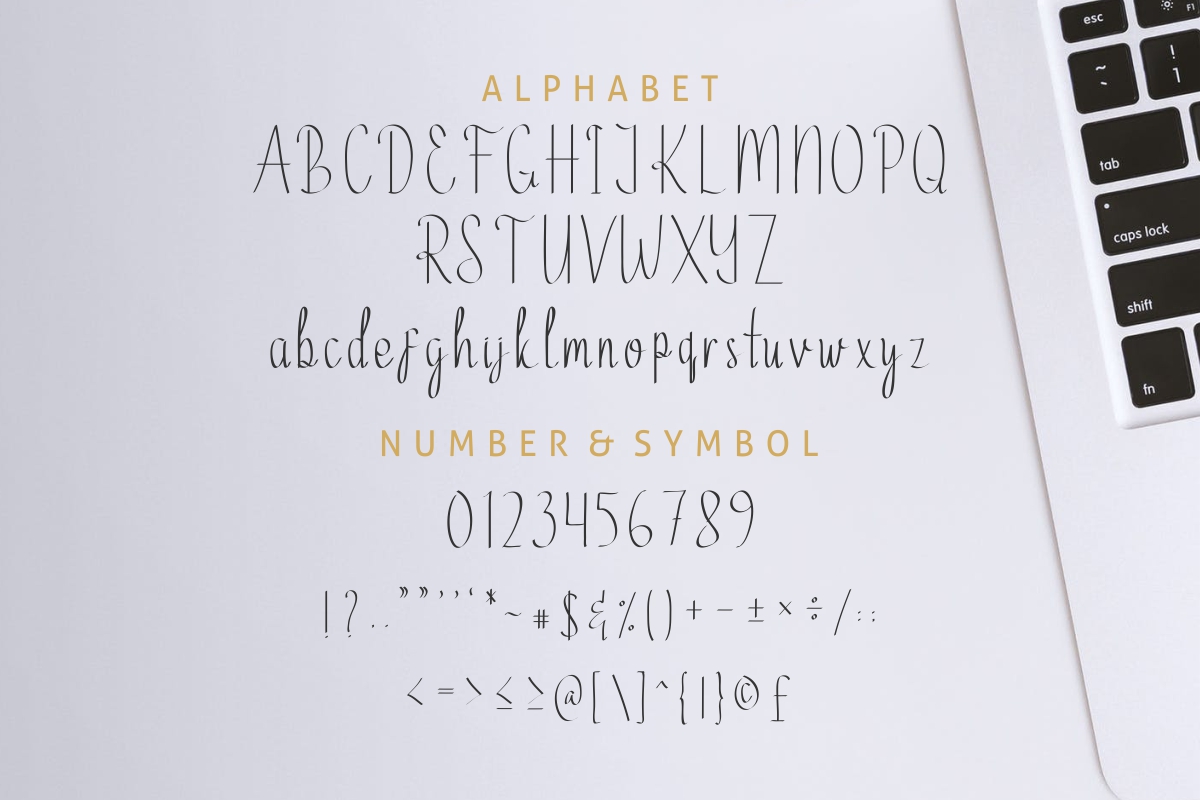 ALPHABET
ABCDEFGHIJKLMNOPQ
RSTUVWXYZ
abcdefghijklmnopqrstuvwxyz
NUMBER & SYMBOL
0123456789
!?..””’’‘*~#$&%()+−±×÷/::
<=>≤≥@[\]^{|}©£
esc
F1
~
`
!
1
tab
caps lock
shift
fn